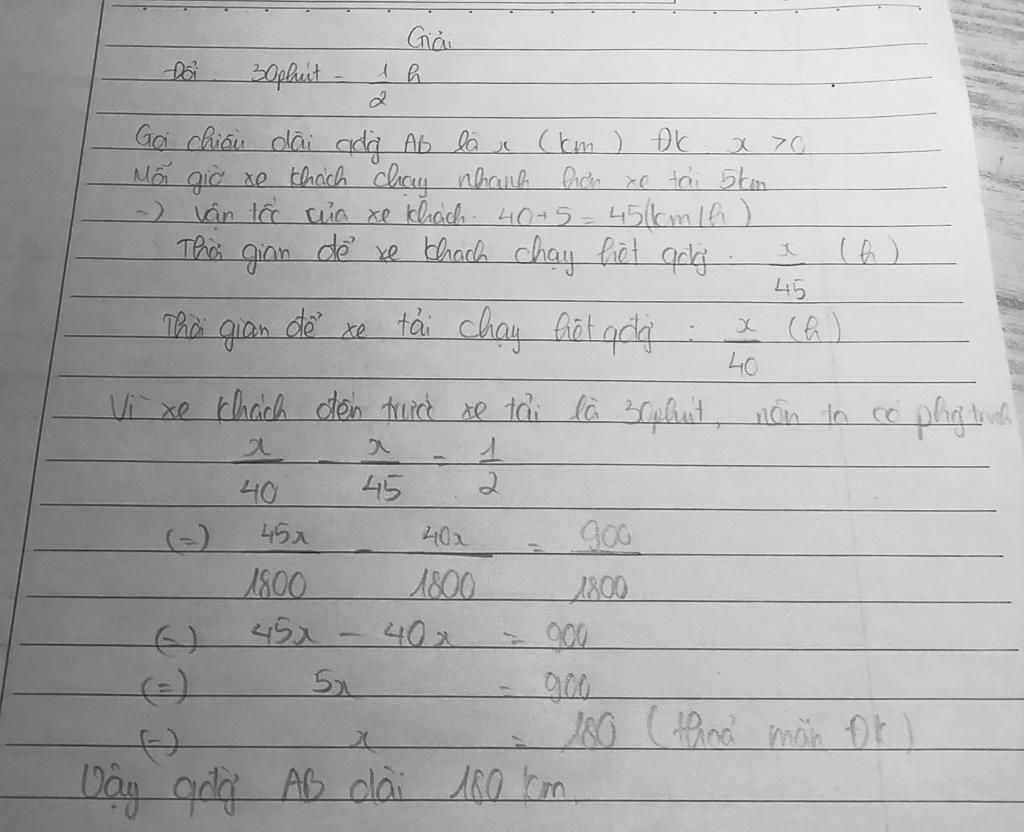 Giải
Đổi 30phút = 1/2 h
Gọi chiều dài qđg AB là x (km) ĐK x > 0
Mỗi giờ xe khách chạy nhanh hơn xe tải 5km
=) vận tốc của xe khách. 40+5 = 45(km/h)
Thời gian để xe khách chạy hết qđg. x/45 (h)
Thời gian để xe tải chạy hết qđg : x/40 (h)
Vì xe khách đến trước xe tải là 30phút, nên ta có phg trình
x/40 - x/45 = 1/2
(=) 45x/1800 - 40x/1800 = 900/1800
(=) 45x - 40x = 900
(=) 5x = 900
(=) x = 180 (thoả mãn ĐK)
Vậy qđg AB dài 180 km.